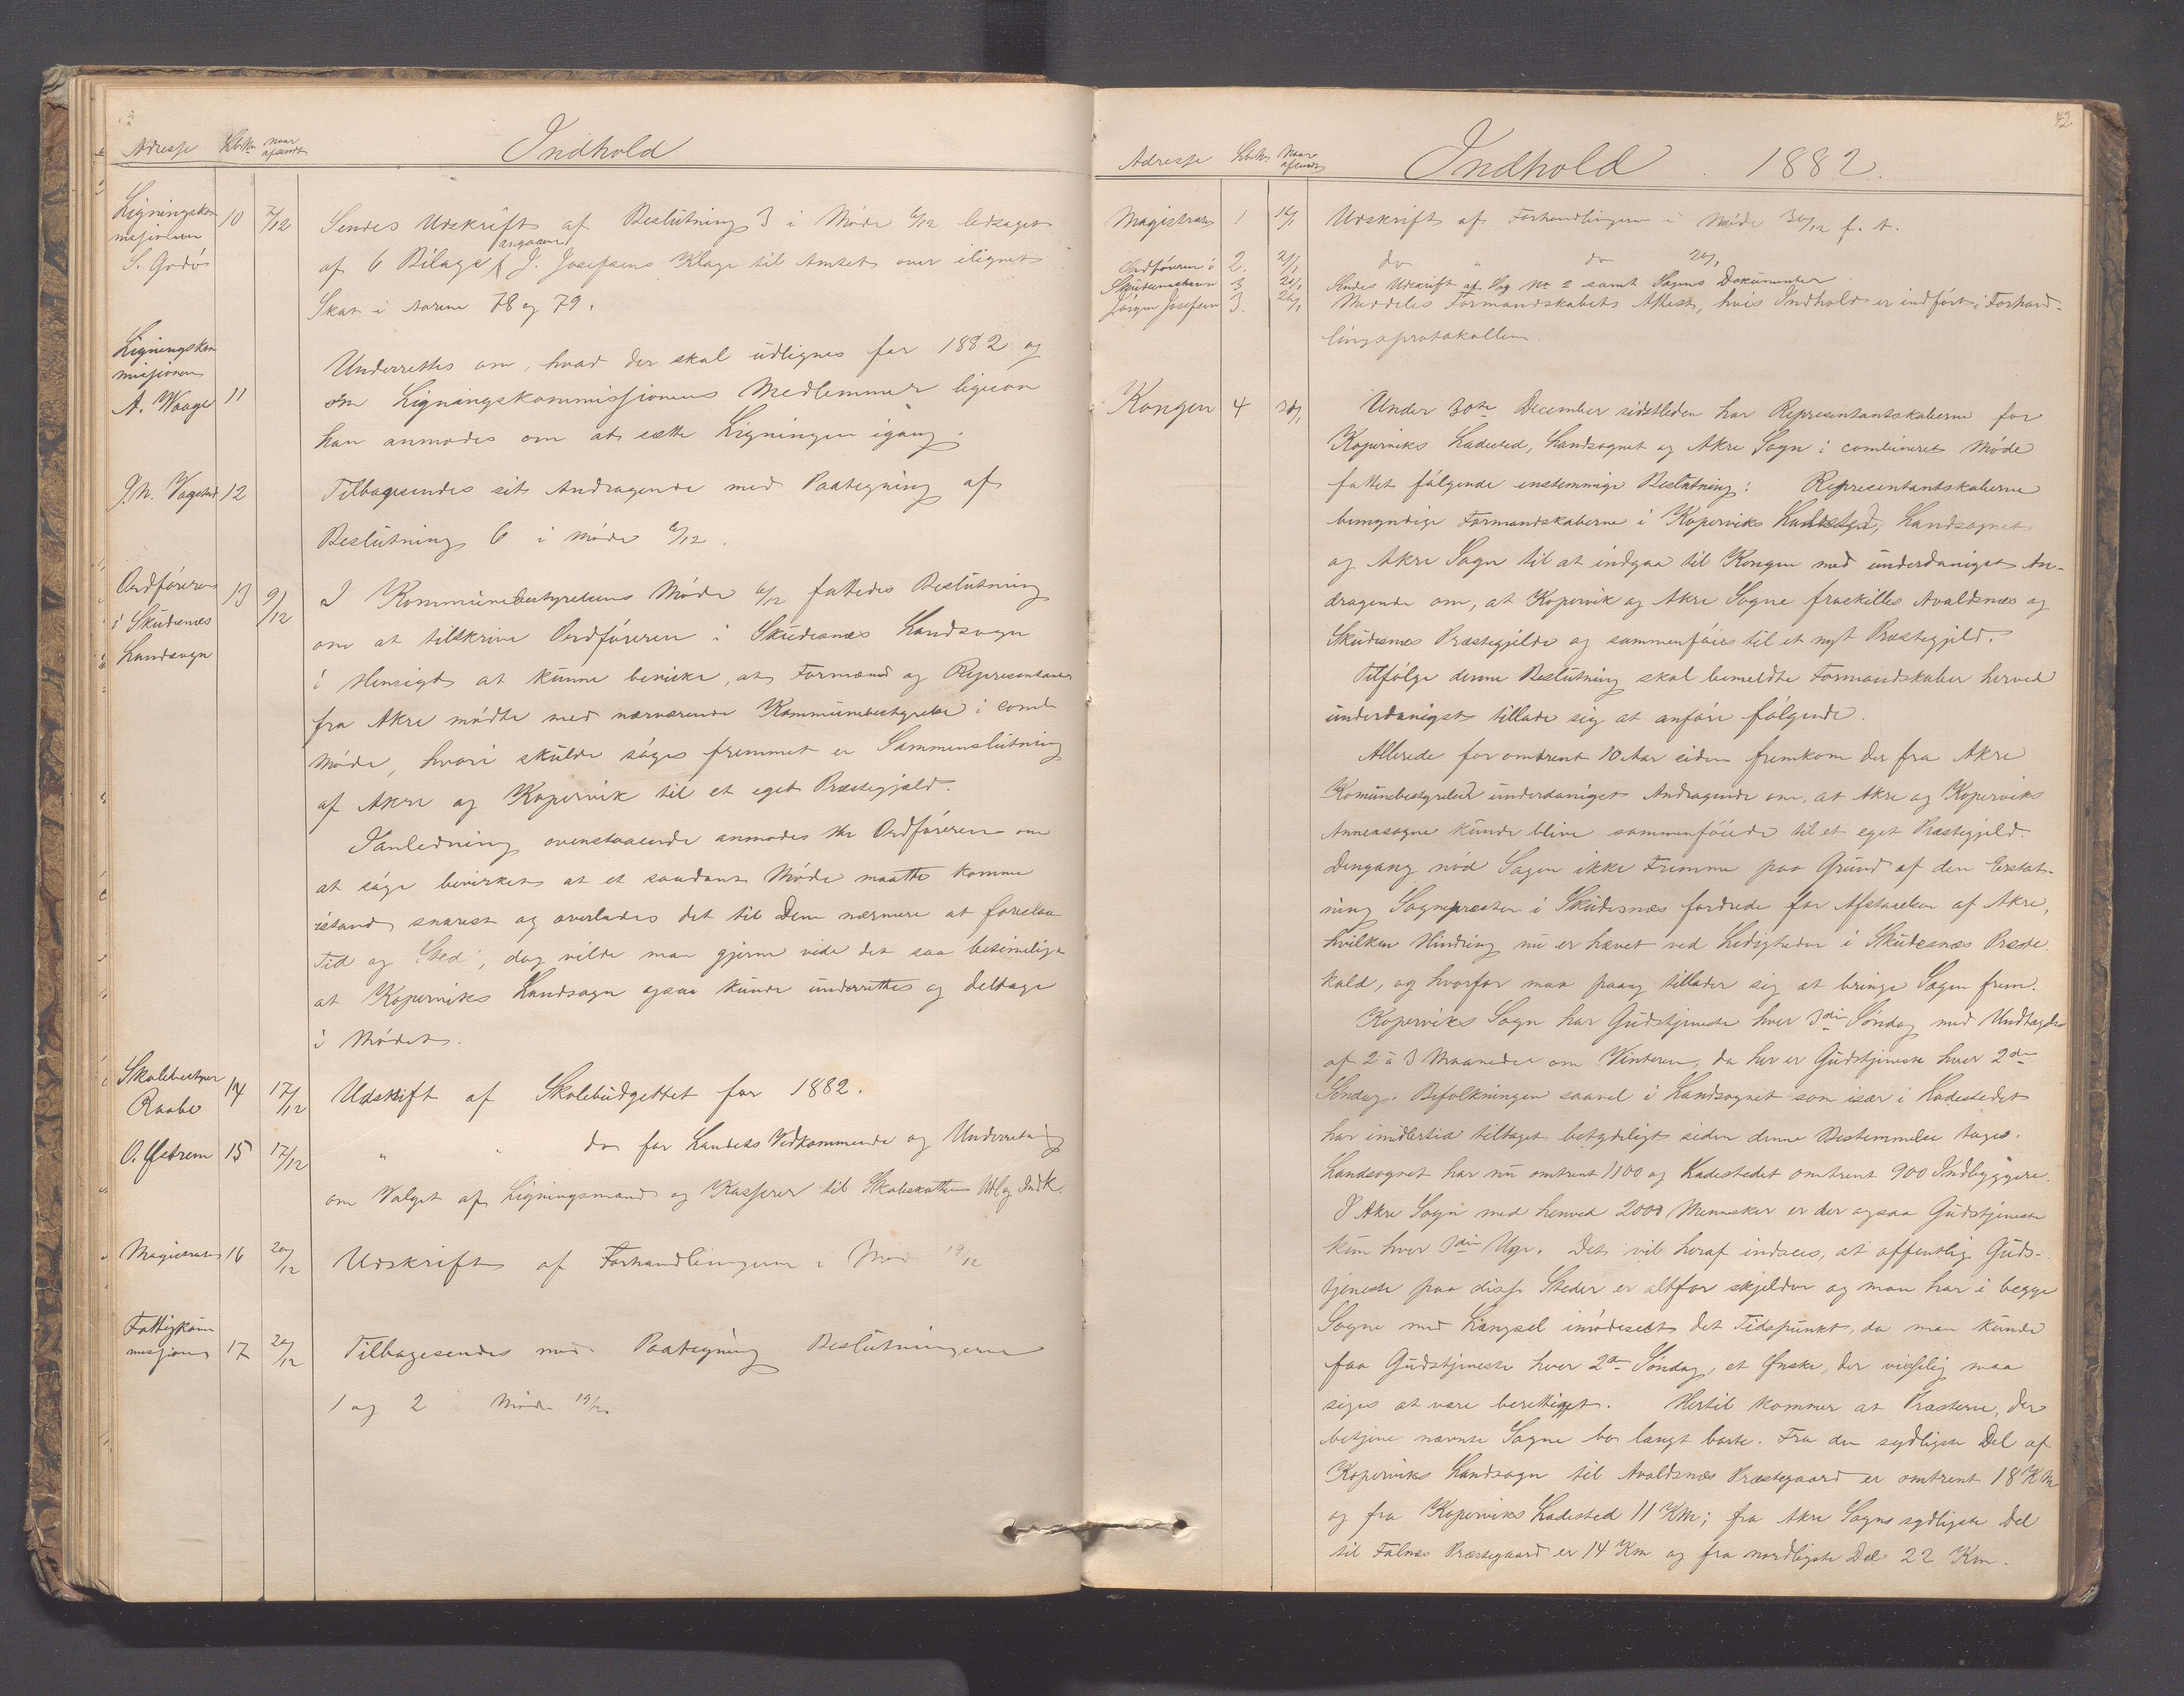 Adresse Lb.No naar afsendt Indhold
Ligningskom
missionen
S. Godö
10 7/12 Sendes Udskrift af Beslutning 3 i Møde 6/12 ledsaget
af 6 Bilage angaaende J. Josefsens Klage til Amtet over ilignet
Skat i Aarene 78 og 79.
Ligningskom
missionen
A. Waage 11
Underrettes om, hvad der skal udlignes for 1882 og
om Ligningskommissionens Medlemmer ligesom
han anmodes om at sætte Ligningen igang.
12 Tilbagesendes sit Andragende med Paategning af
Beslutning 6 i Møde 6/12.
Ordføreren
i Skudesnæs
Landsogn
13 9/12 I Kommunebestyrelsens Møde 6/12 fattedes Beslutning
om at tilskrive Ordføreren i Skudesnæs Landsogn
i Hensigt at kunne bevirke, at Formænd og Repræsentanter
fra Akre mødte med nærværende Kommunebestyrelse i comb.
Møde, hvori skulde søges fremmet en Sammenslutning
af Akre og Kopervik til et eget Præstegjæld.
I anledning ovenstaaende anmodes Hr Ordføreren om
at søge bevirket at et saadant Møde maatte komme
istand snarest og overlades det til Dem nærmere at foreslaa
Tid og Sted, dog vilde man gjerne vide det saa betimelig
at Koperviks Landsogn ogsaa kunde underrettes og deltage
i Mødet.
Skolebestyrer
Raabe
14 17/12 Udskrift af Skolebudgettet for 1882.
O. Østrem 15 17/12 " " do for Landets Vedkommende og Underretning
om Valget af Ligningsmænd og Kasserer til Skoleskatten
Magistraten 16 20/12 Udskrift af Forhandlingerne i Møde 19/12
Fattigkom
missionen 17 20/12 Tilbagesendes med Paategning Beslutningerne
1 og 2 i Møde 19/12.
42
Adresse Lb.No. Naar afsendt Indhold 1882.
Magistraten 1 16/1 Udskrift af Forhandlingerne i Møde 30/12 f. A.
Ordføreren i 2. 21/1 do " do 20/1
Skudesneshavn 3. Sendes Udskrift af Sag No 2 samt Sagens Dokumenter
Jörgen Josefsen 3. Meddeles Formandskabets Attest, hvis Indhold er indført i Forhand-
lingsprotokollen.
Kongen 4 Under 30te December sidstleden har Repræsentantskaberne for
Koperviks Ladested, Landsognet og Akre Sogn i combineret Møde
fattet følgende enstemmige Beslutning: Repræsentantskaberne
bemyndige Formandskaberne i Koperviks Ladested, Landsognet
og Akre Sogn til at indgaa til Kongen med underdanigst An-
dragende om, at Kopervik og Akre Sogne fraskilles Avaldsnes og
Skudesnes Præstegjelde og sammenføies til et nyt Præstegjeld.
Tilfølge denne Beslutning skal bemeldte Formandskaber herved
underdanigst tillade sig at anføre følgende.
Allerede for omtrent 10 Aar siden fremkom der fra Akre
Komunebestyrelse underdanigst Andragende om, at Akre og Koperviks
Annexsogne kunde blive sammenføiede til et eget Præstegjeld.
Dengang nød Sagen ikke Fremme paa Grund af den Erstat-
ning Sognepræsten i Skudesnæs fordrede for Afstaaelsen af Akre,
hvilken Hindring nu er hævet ved Ledigheden i Skudesnæs Præste-
kald, og hvorfor man paany tillader sig at bringe Sagen frem.
Koperviks Sogn har Gudstjeneste hver 3die Søndag med Undtagelse
af 2 à 3 Maaneder om Vinteren, da her er Gudstjeneste hver 2den
Søndag. Befolkningen saavel i Landsognet som især i Ladestedet
har imidlertid tiltaget betydeligt siden denne Bestemmelse toges.
Landsognet har nu omtrent 1100 og Ladestedet omtrent 900 Indbyggere.
I Akre Sogn med henved 2000 Mennesker er der ogsaa Gudstjeneste
kun hver 3die Uge. Det vil heraf indsees, at offentlig Guds-
tjeneste paa disse Steder er altfor skjelden og man har i begge
Sogne med Længsel imødeseet det Tidspunkt, da man kunde
faa Gudstjeneste hver 2den Søndag, et Ønske, der visselig maa
siges at være berettiget. Hertil kommer at Præsterne, der
betjene nævnte Sogne bo langt borte. Fra den sydligste Del af
Koperviks Landsogn til Avaldsnæs Præstegaard er omtrent 18 KM
og fra Koperviks Ladested 11 KM; fra Akre Sogns sydligste Del
til Falnæs Præstegaard er 14 Km og fra nordligste Del 22 Km.